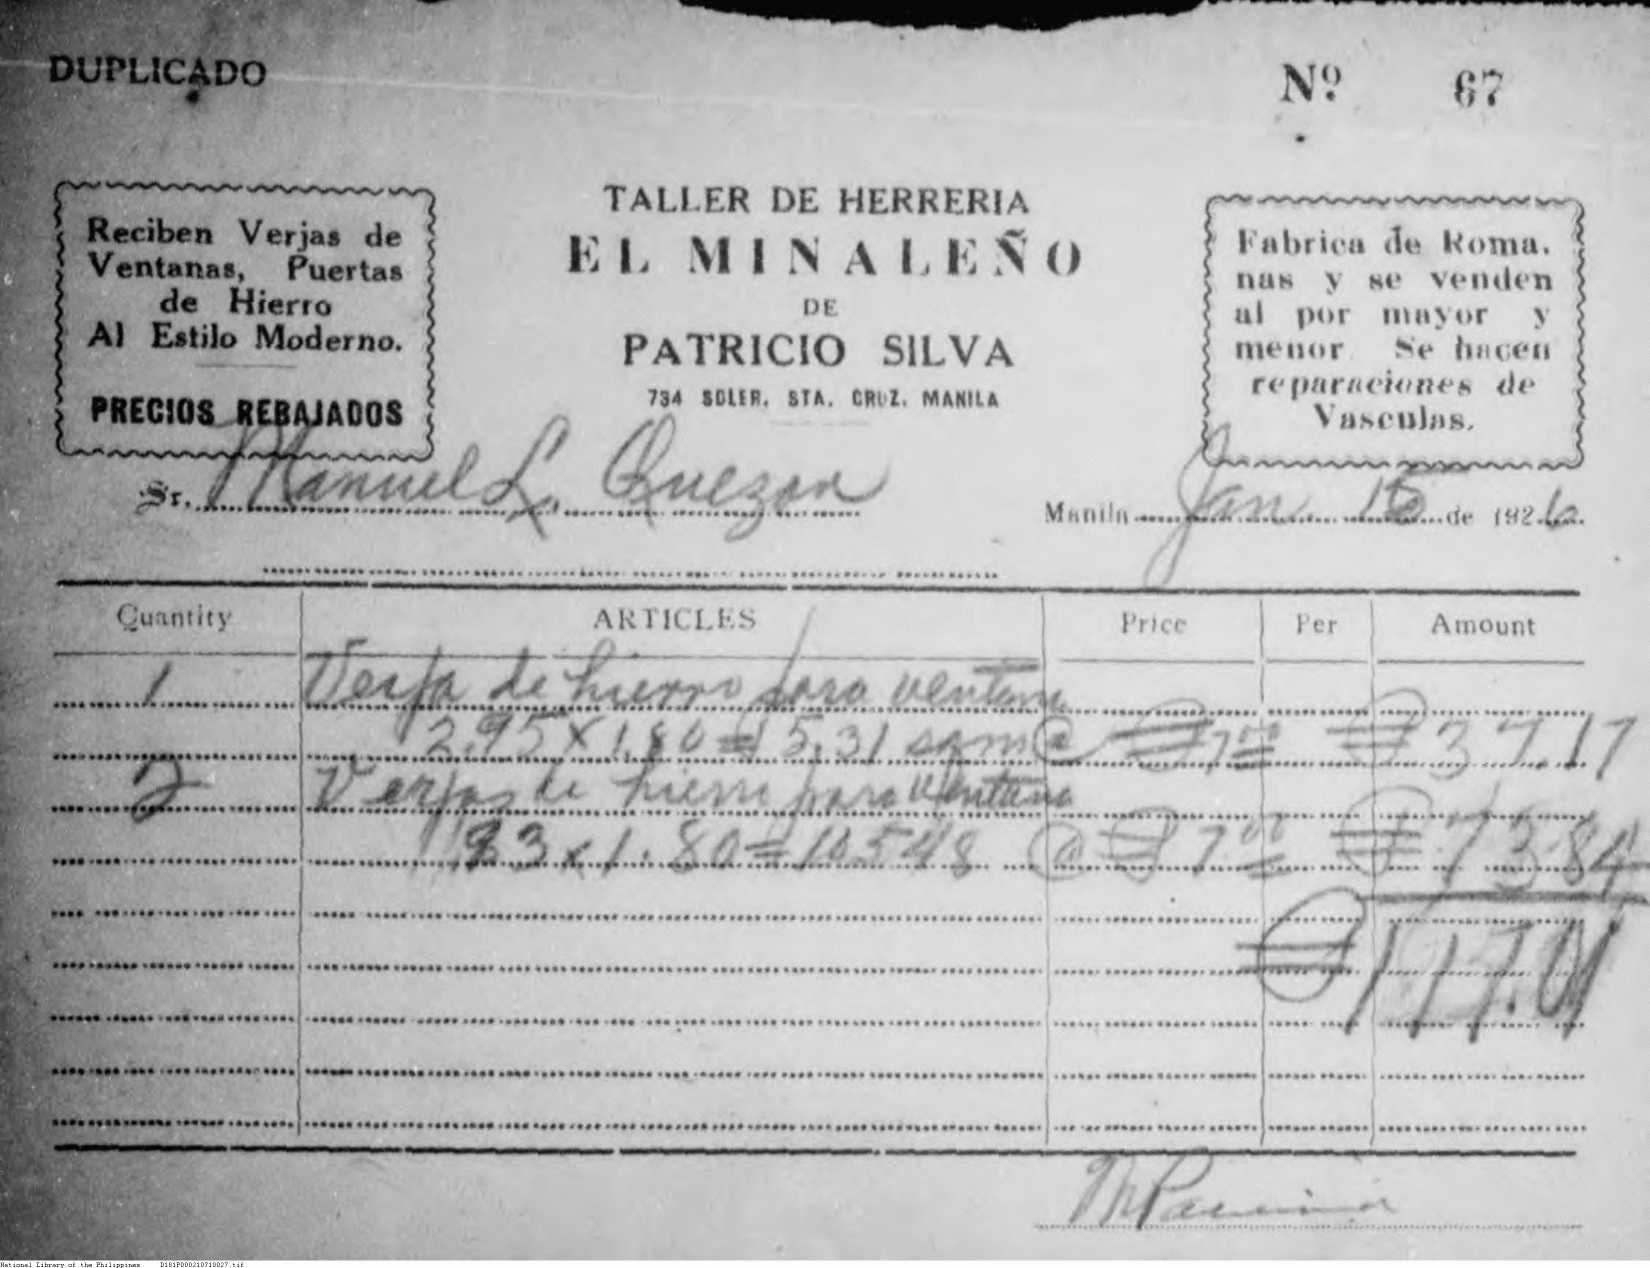 DUPLICADO
Nº 67
Reciben Verjas de
Ventanas, Puertas
de Hierro
Al Estilo Moderno.
PRECIOS REBAJADOS
TALLER DE HERRERIA
EL MINALEÑO
DE
PATRICIO SILVA
734 SOLER, STA. CRUZ, MANILA
Fabrica de Roma.
nas y se venden
al por mayor y
menor Se hacen
reparaciones de
Vasculas.
Sr. Manuel L. Quezon
Manila Jan 15 de 1926
Quantity ARTICLES Price Per Amount
1 Verja de hierro para ventana
2.95 x 1.80 = 5.31 sqm @ ₱7.00 ₱37.17
2 Verjas de hierro para ventana
x 1.80 = @ ₱7.00 ₱73.84
₱111.01
National Library of the Philippines D181P000210710027.tif